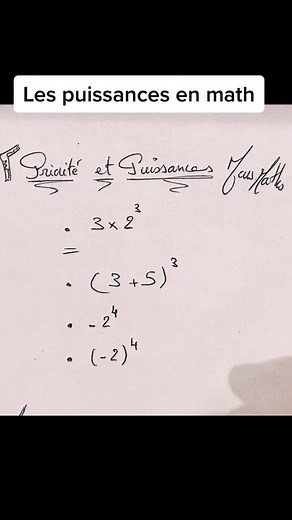 Les puissances en math
Priorité et Puissances
• 3 × 2³
=
• (3 + 5)³
• - 2⁴
• (-2)⁴